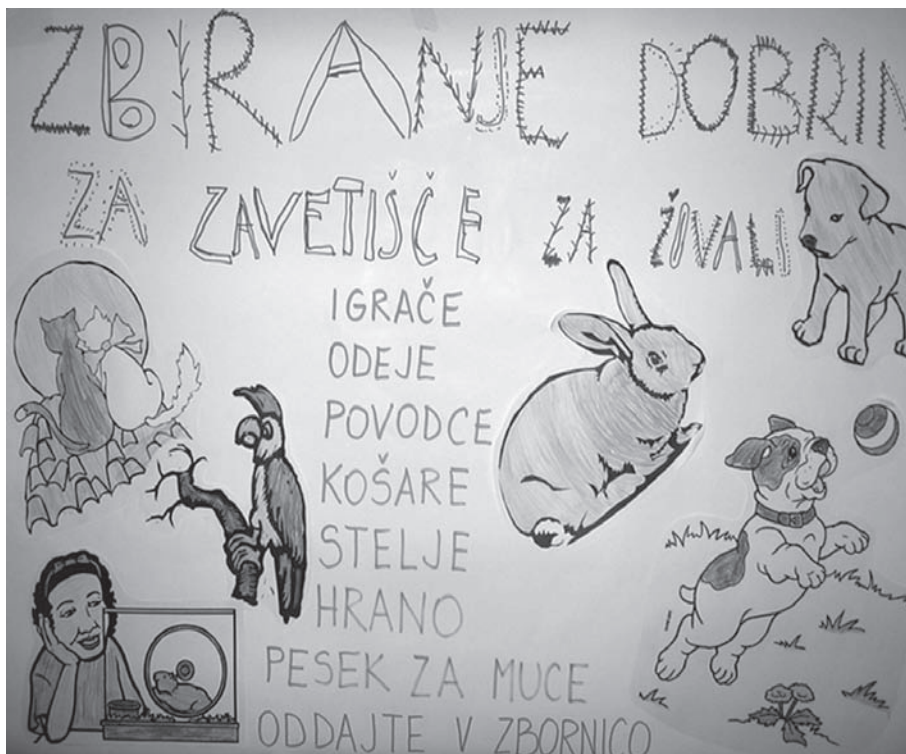 ZBIRANJE DOBRIN
ZA ZAVETIŠČE ZA ŽIVALI
IGRAČE
ODEJE
POVODCE
KOŠARE
STELJE
HRANO
PESEK ZA MUCE
ODDAJTE V ZBORNICO